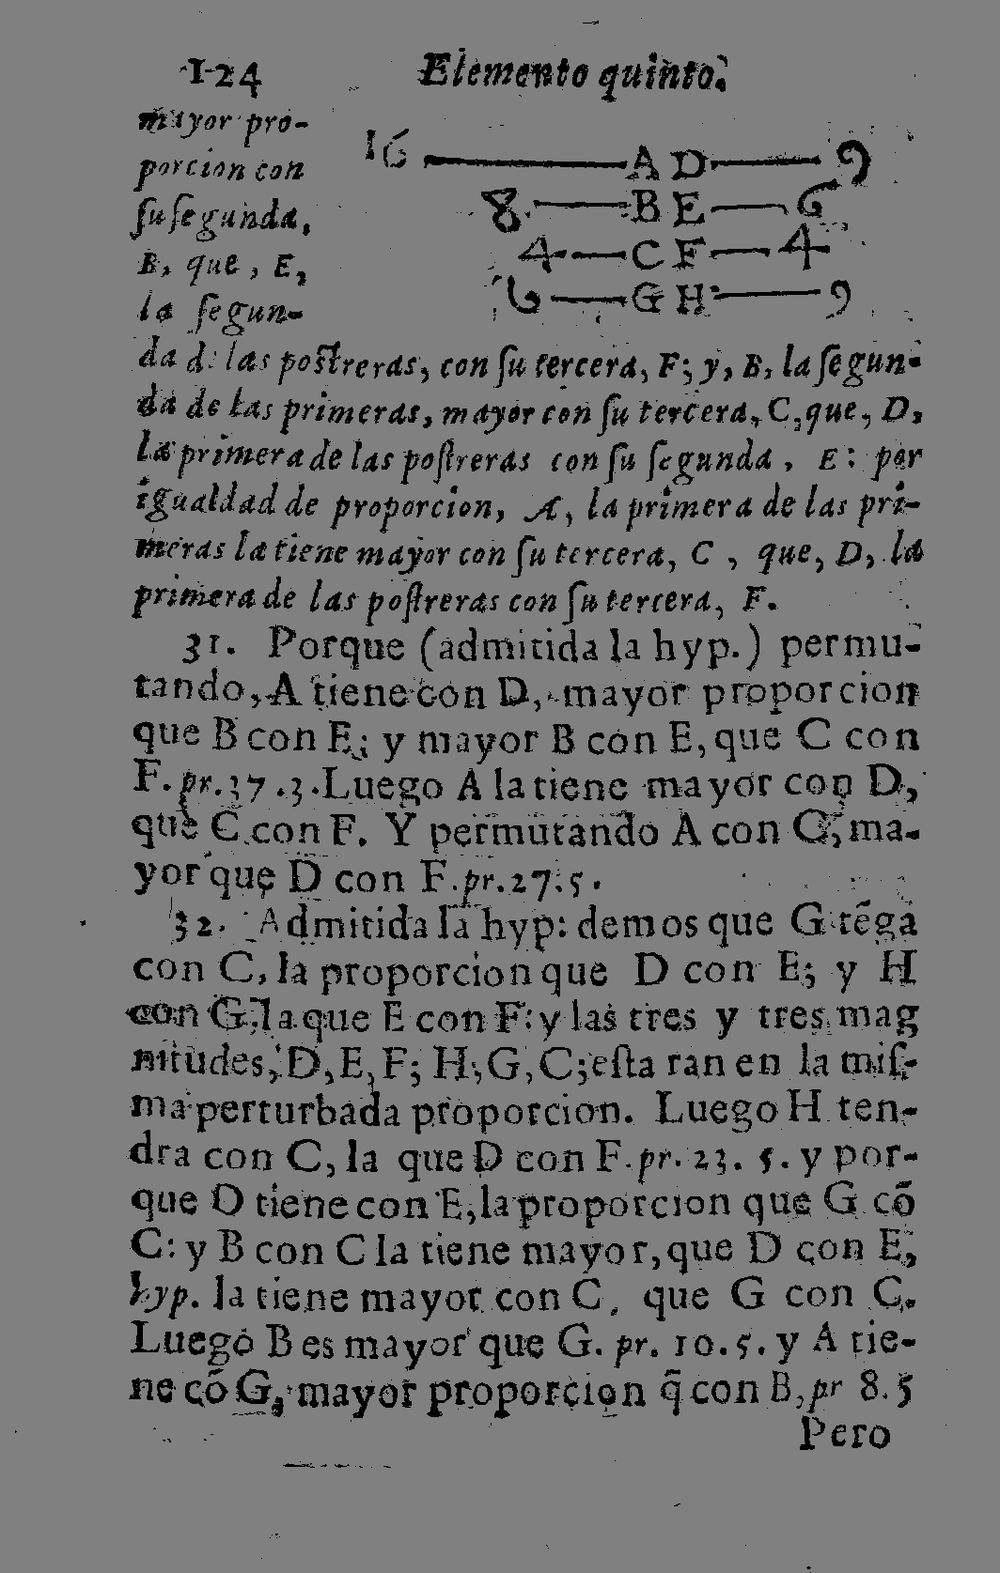 124 Elemento quinto.
mayor pro-
porcion con
su ſegunda,
B, que, E,
la ſegun-
16 A D 9
8 B E 6
4 C F 4
6 G H 9
da d: las poſtreras, con ſu tercera, F; y, B, la ſegun-
da de las primeras, mayor con ſu tercera, C, que, D,
la primera de las poſtreras con ſu ſegunda, E: por
igualdad de proporcion, A, la primera de las pri-
meras la tiene mayor con ſu tercera, C, que, D, la
primera de las poſtreras con ſu tercera, F.
31. Porque (admitida la hyp.) permu-
tando, A tiene con D, mayor proporcion
que B con E; y mayor B con E, que C con
F. pr. 37.3. Luego A la tiene mayor con D,
que C con F. Y permutando A con C, ma-
yor que D con F. pr. 27.5.
32. Admitida la hyp: demos que G tẽga
con C, la proporcion que D con E; y H
con G, la que E con F: y las tres y tres mag
nitudes, D, E, F; H, G, C; eſta ran en la miſ-
ma perturbada proporcion. Luego H ten-
dra con C, la que D con F. pr. 23. 5. y por-
que D tiene con E, la proporcion que G cõ
C: y B con C la tiene mayor, que D con E,
hyp. la tiene mayor con C, que G con C.
Luego B es mayor que G. pr. 10. 5. y A tie-
ne cõ G, mayor proporcion q̃ con B, pr 8. 5
Pero